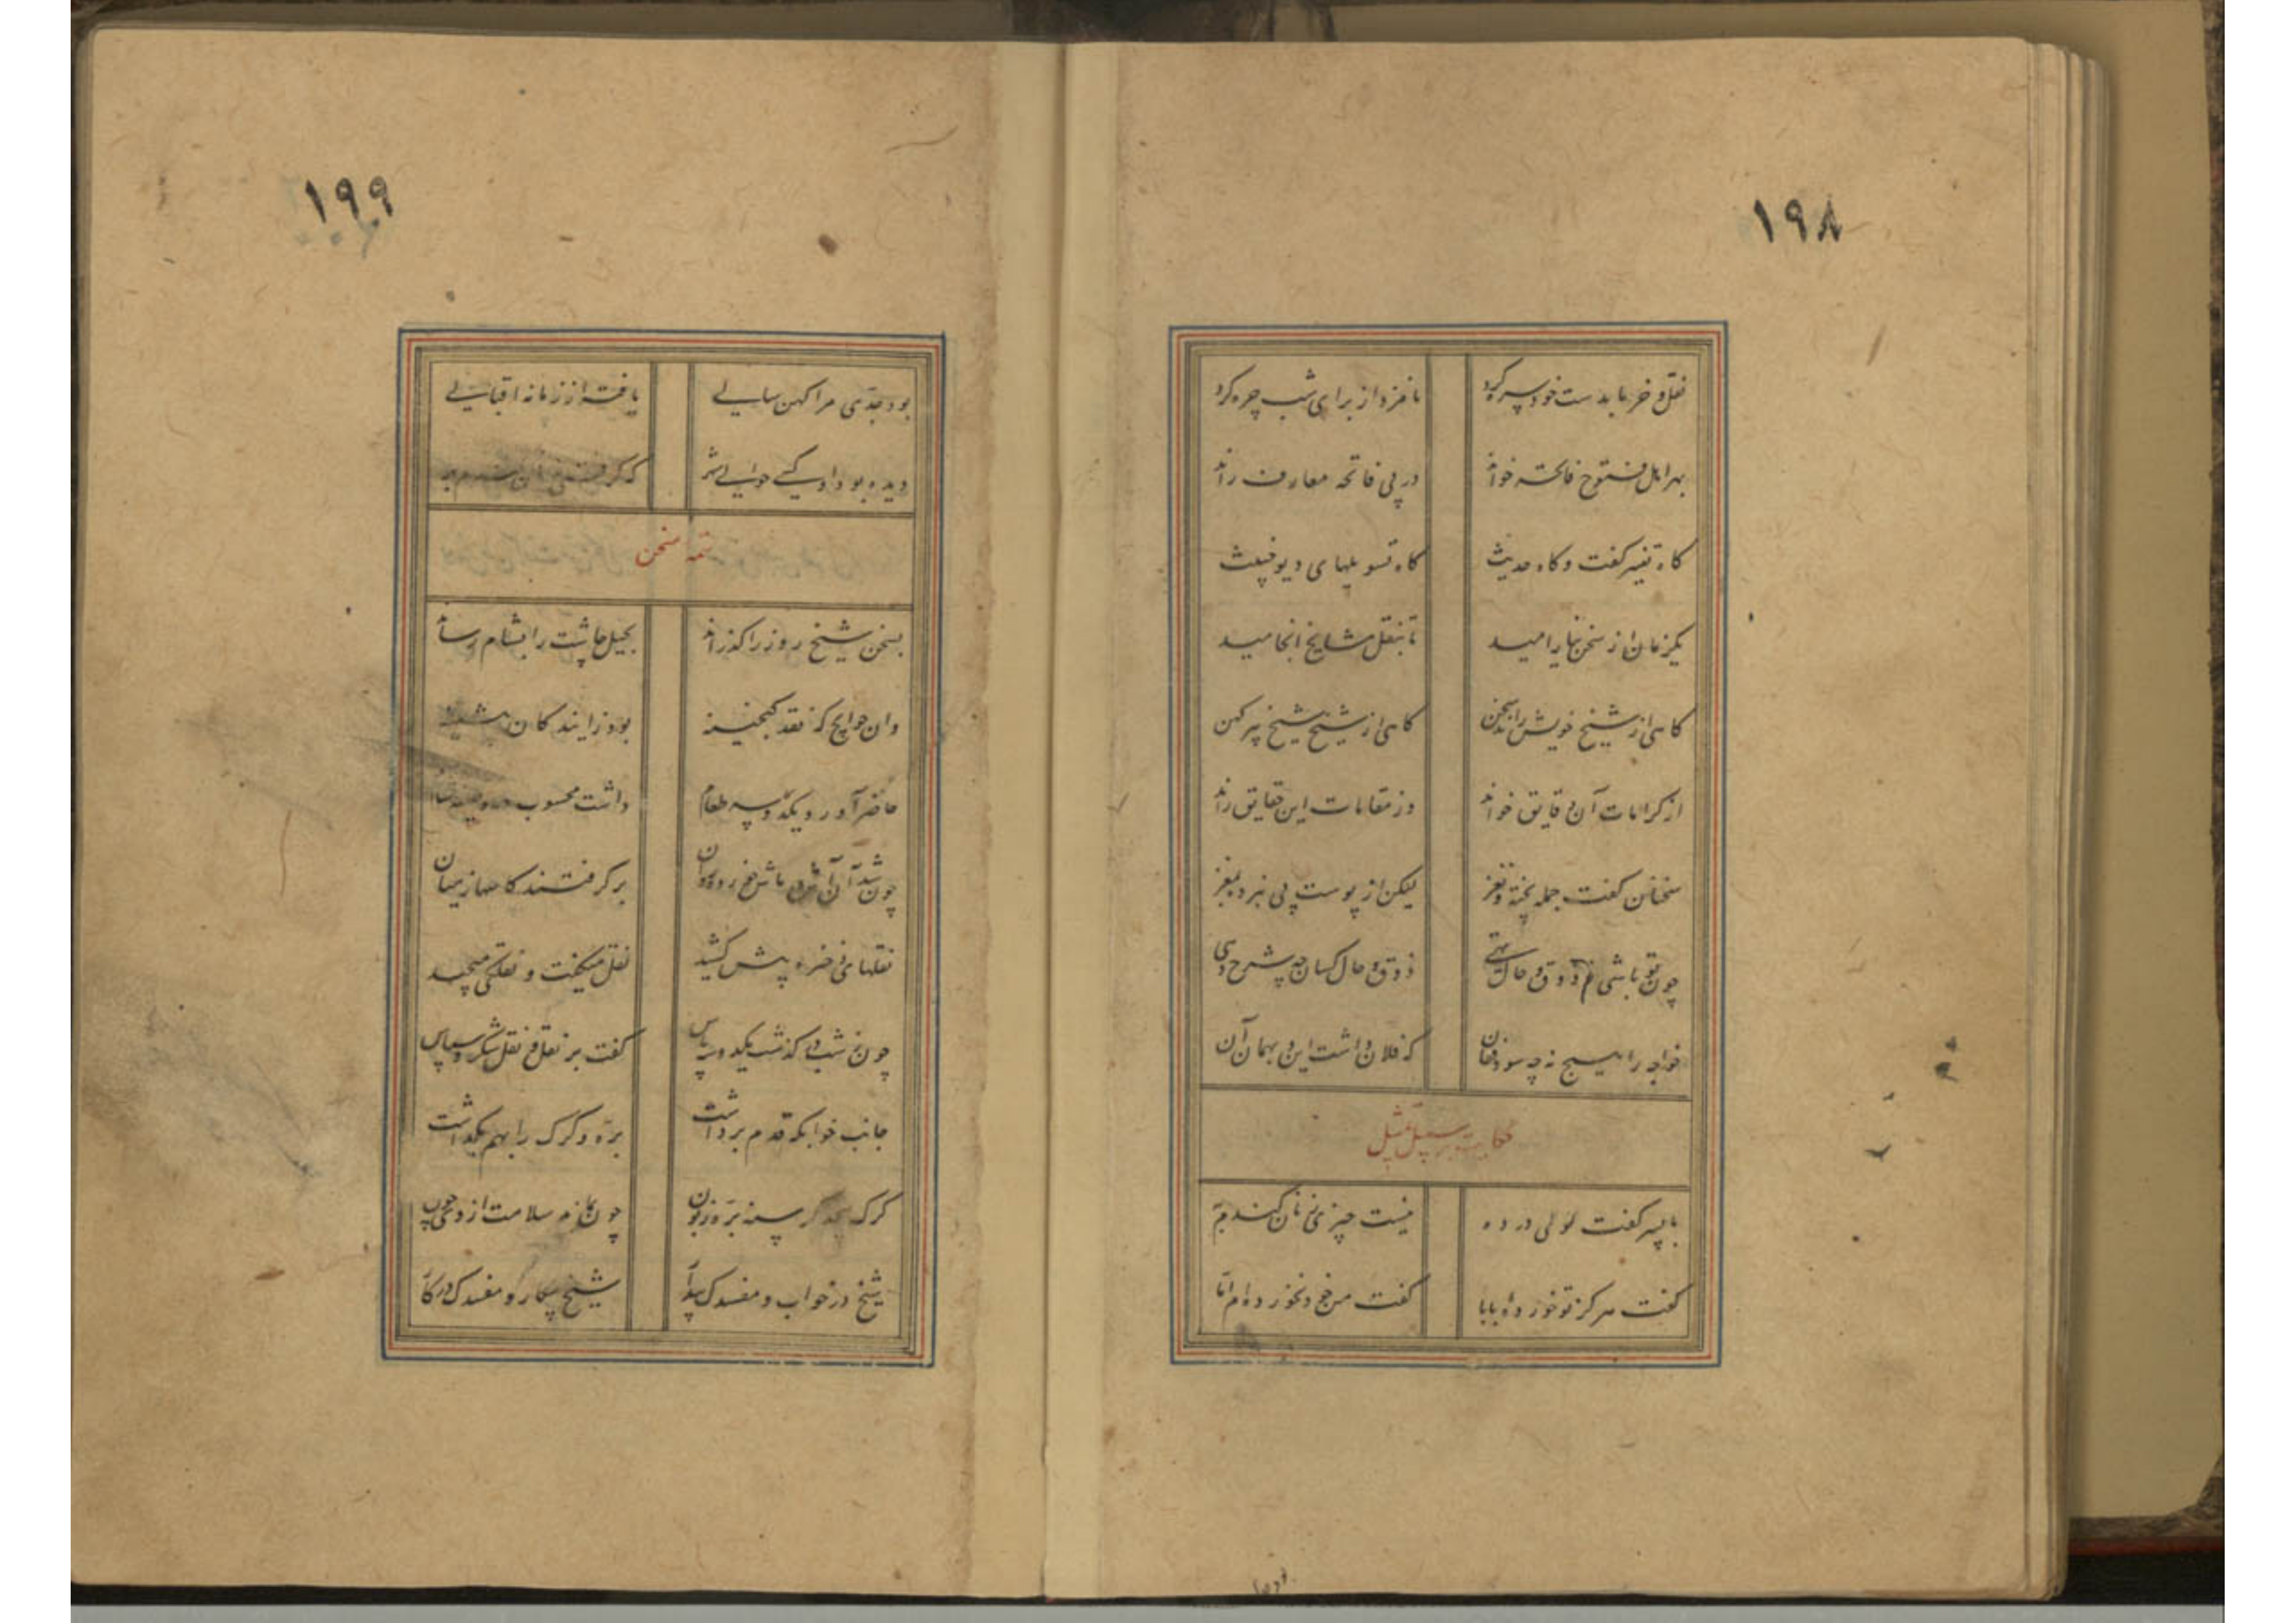 ۱۹۸
نقل و خرما بدست خود سره کرد نامزد از برای شب چره کرد
بهر اهل فتوح فاتحه خواند در پی فاتحه معارف راند
گاه تفسیر گفت و گاه حدیث گاه تسویلهای دیو خبیث
یکزمان از سخن نیارامید تا بنقل مشایخ انجامید
گاهی از شیخ خویش راند سخن گاهی از شیخ شیخ پیر کهن
از کرامات آن دقایق خواند وز مقامات این حقایق راند
سخنان گفت جمله پخته و نغز لیکن از پوست پی نبرده بمغز
چون تو باشی ز ذوق و حال تهی ذوق و حال کسان چه شرح دهی
خواجه را هیچ نه چه سود از آن که فلان داشت این و بهمان آن
حکایت بر سبیل تمثیل
با پسر گفت لولی در ده نیست چیزی ز نان گندم به
گفت هرگز تو خورده بابا گفت من خود نخورده ام اما
۱۹۹
بود جدی مرا کهن سالی یافته از زمانه اقبالی
دیده بود او کسی حوالی شهر که گرفتی از آن
تتمه سخن
بسخن شیخ روز را گذراند بحیل چاشت را بشام رساند
وان حوایج که نقد گنجینه بود زایندگان
حاضر آورد یکدوسه طعام داشت محسوب
چون شد آن آش و ماش خورده روان برگرفتند کاسها ز میان
نقلهای ذخیره پیش کشید نقل میگفت و نقل می‌چید
چون ز شب درگذشت یکدوسه پاس گفت بر نقل و نقل شکر و سپاس
جانب خوابگه قدم برداشت بره و گرگ را بهم بگذاشت
گرگ گرسنه بره زبون چون بماند سلامت از وی چون
شیخ در خواب و مفسدک بیدار شیخ بیکار و مفسدک در کار